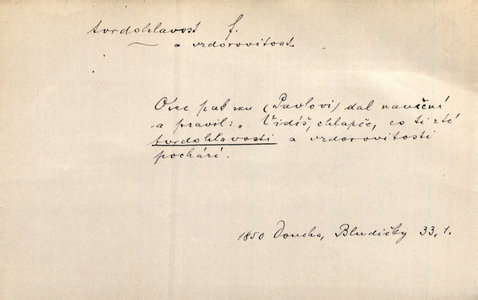 tvrdohlavost f.
a vzdorovitost
Otec pak mu (Pavlovi) dal naučení
a pravil: „Vidíš, chlapče, co ti z té
tvrdohlavosti a vzdorovitosti
pochází.
1850 Doucha, Bludičky 33, 1.